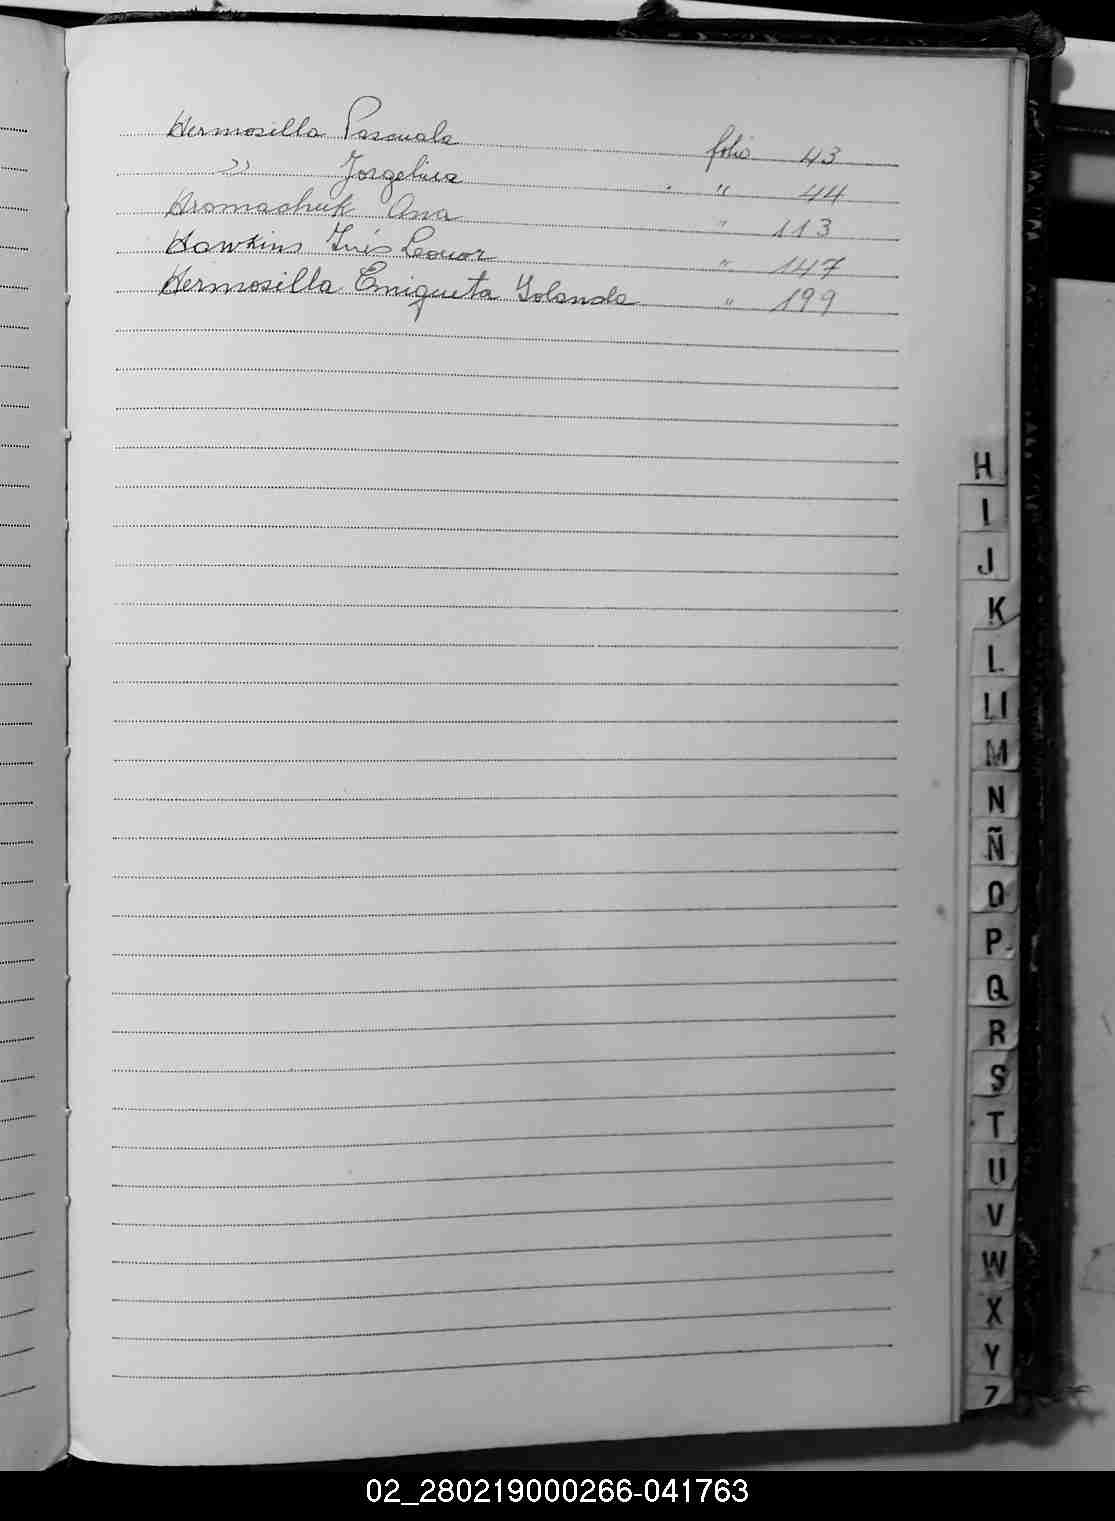 Hermosilla Pascuala folio 43
" Jorgelina " 44
Hromachuk Ana " 113
Hawkins Inés Leonor " 147
Hermosilla Eniqueta Yolanda " 199
H
I
J
K
L
Ll
M
N
Ñ
O
P
Q
R
S
T
U
V
W
X
Y
Z
02_280219000266-041763